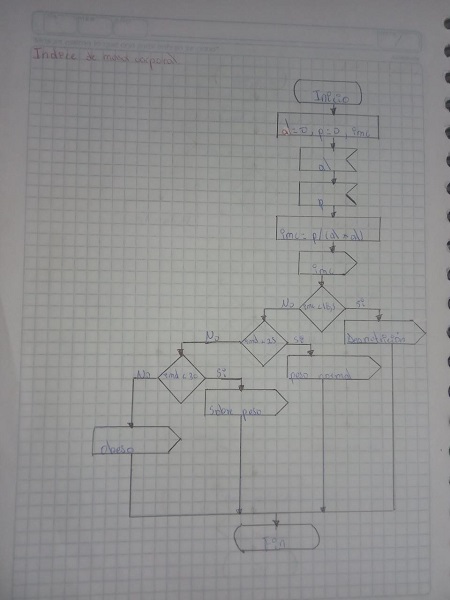 Indice de masa corporal
Inicio
al=0, p=0, imc
al
p
imc = p/(al * al)
imc
No
Si
Desnutrición
No
Si
peso normal
No
Si
Sobre peso
obeso
Fin